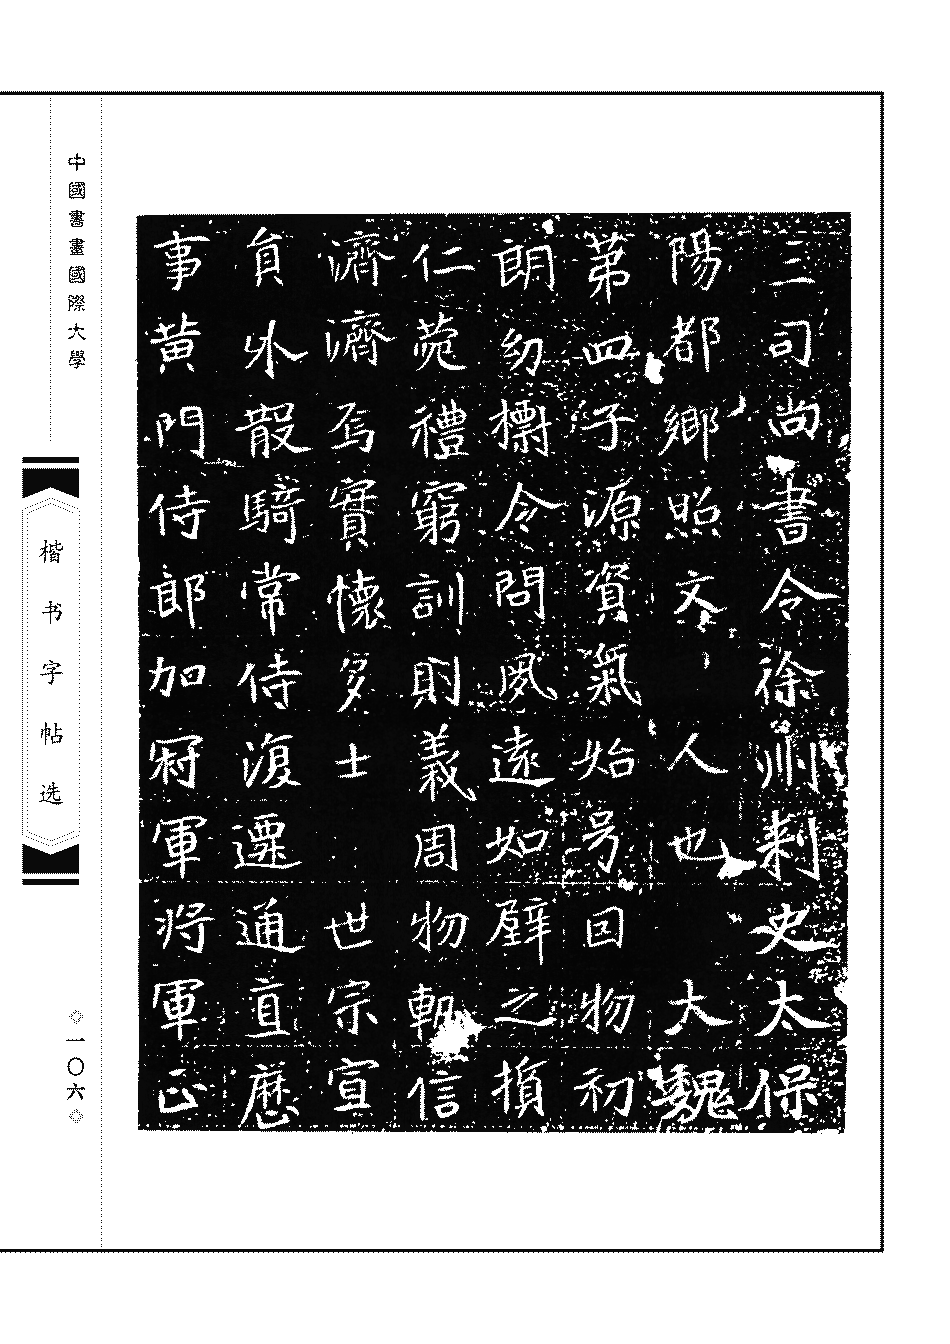 三司尚書令徐州刺史太保
陽都鄉照文 人也 大魏
苐四子源資氣始号回物初
朗幼摽令問夙遠如璧之損
仁莞禮窮訓則義周物軌信
濟濟焉實懷多士 世宗宣
負外散騎常侍復遷通直歷
事黄門侍郎加冠軍將軍正
中國書畫國際大學
楷书字帖选
◇一〇六◇